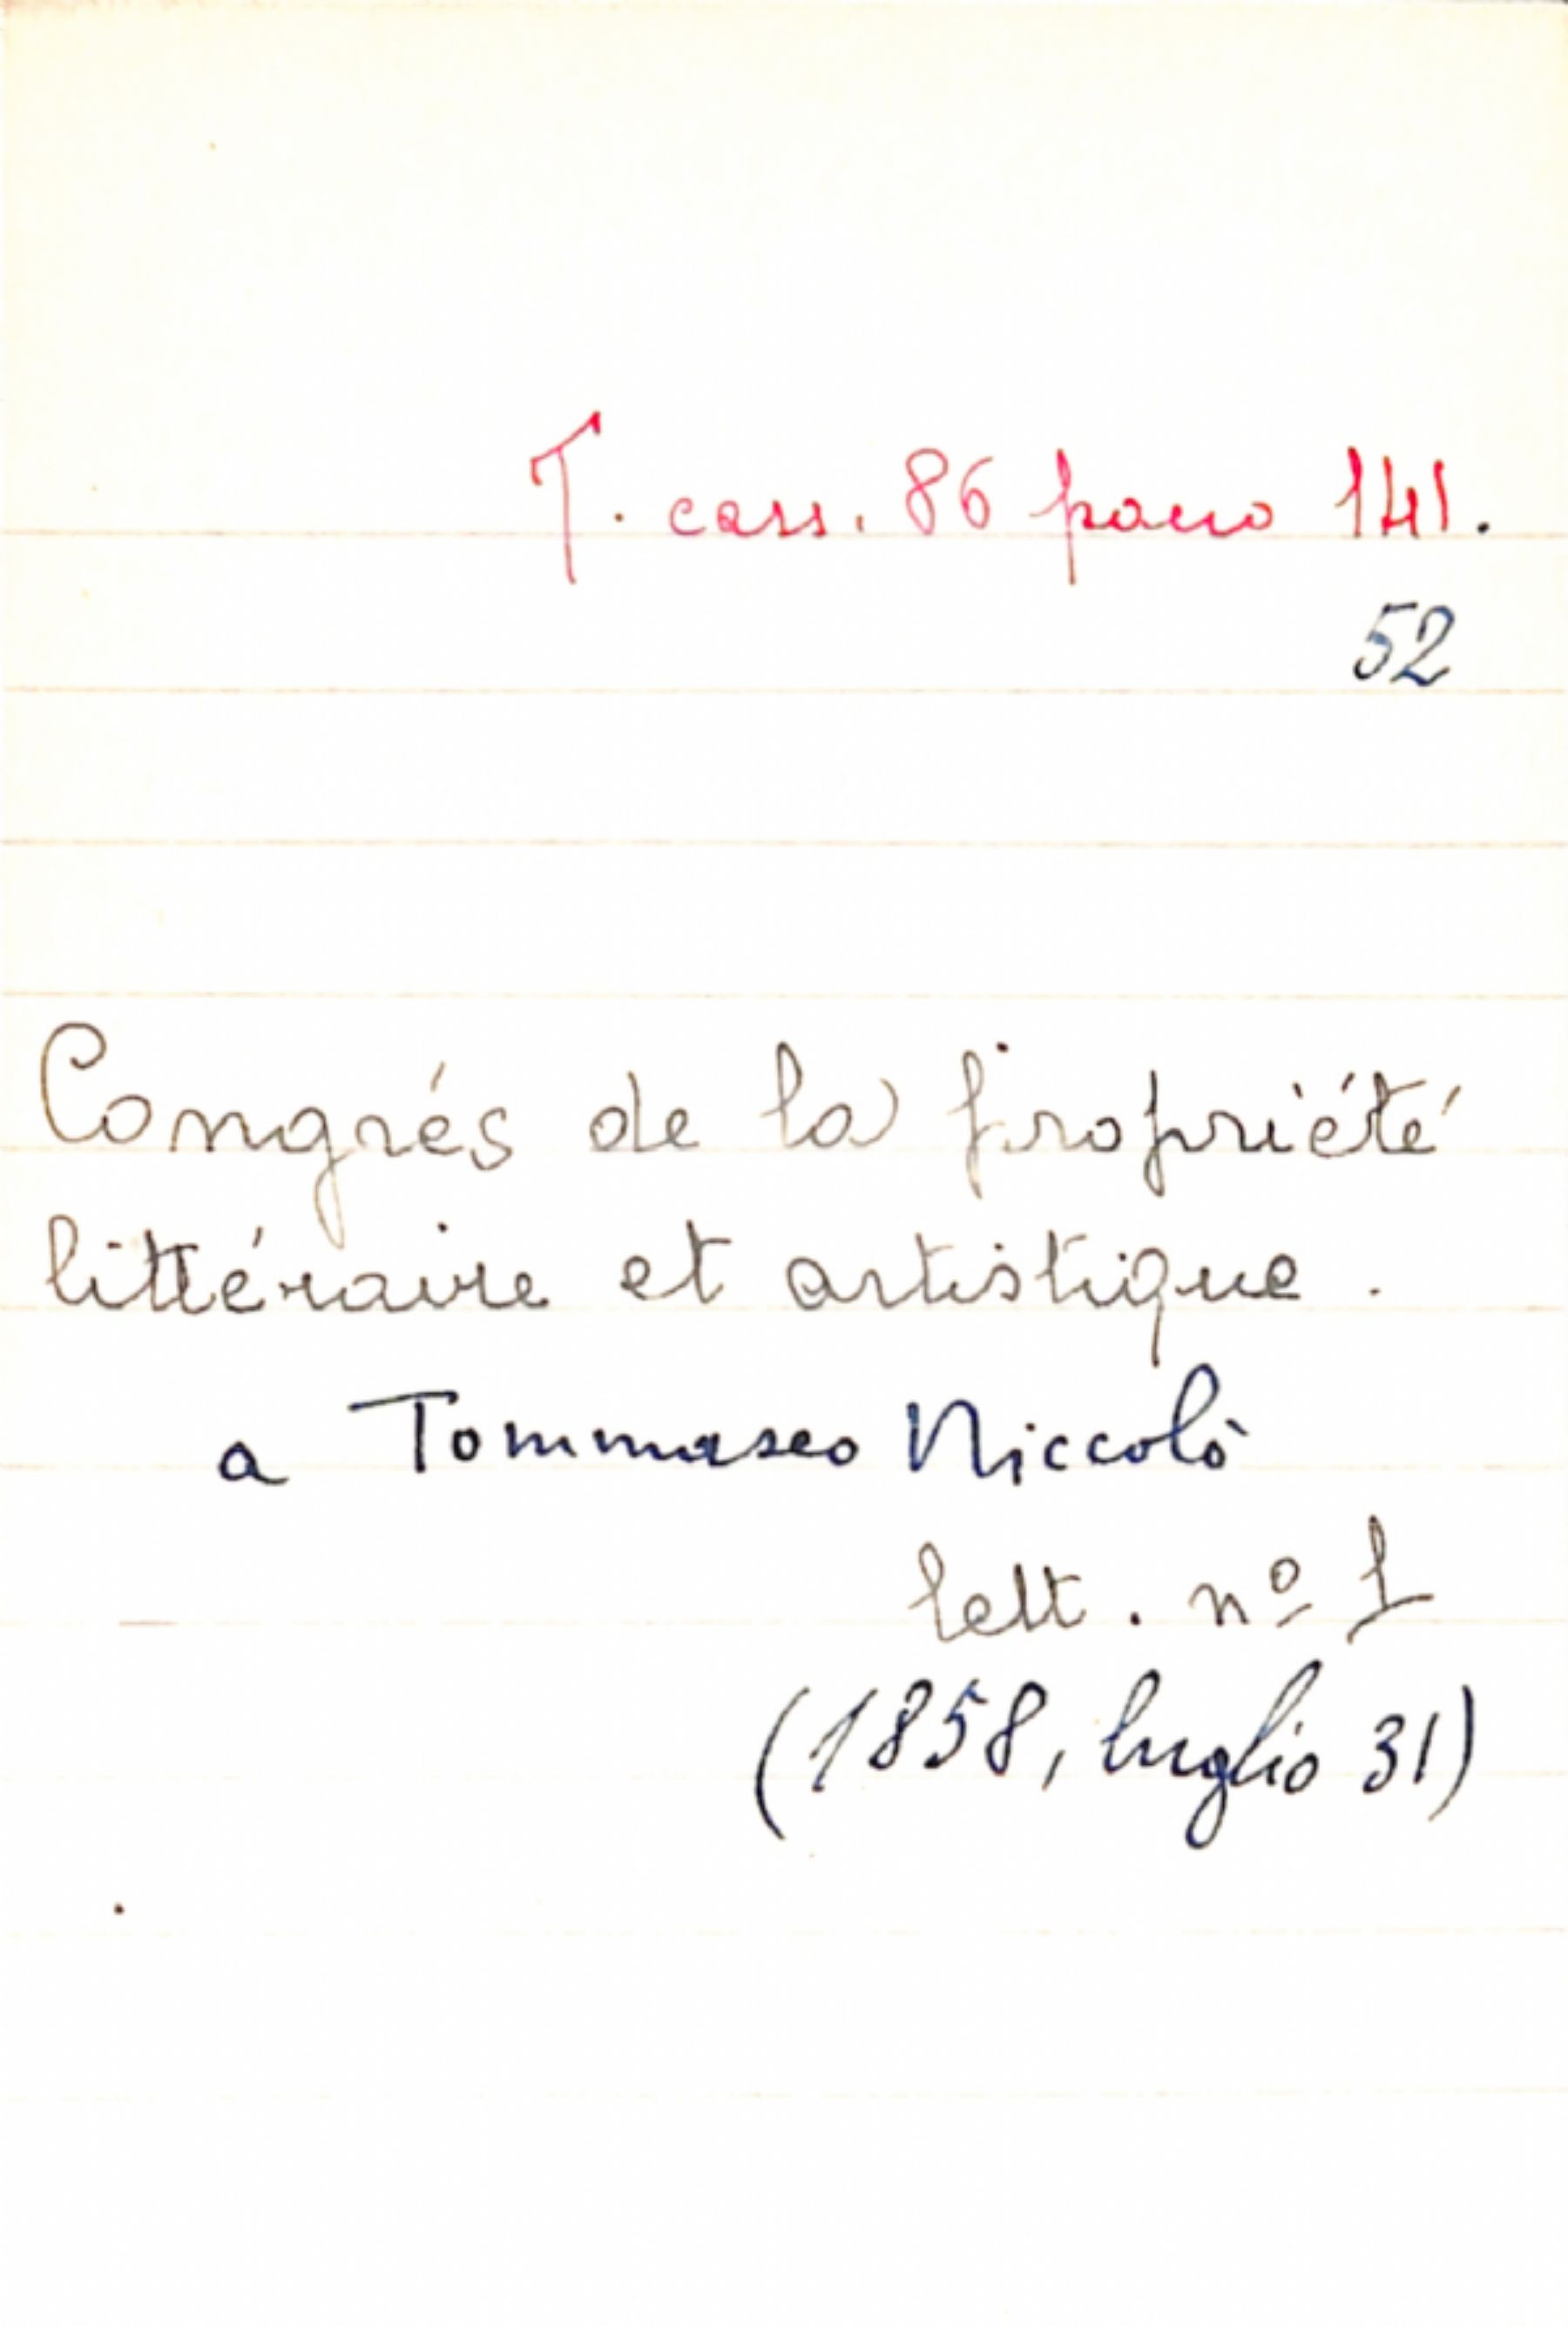 T. cass. 86 pacco 141.
52
Congrés de la propriété
littéraire et artistique.
a Tommaseo Niccolò
lett. nº 1
(1858, luglio 31)